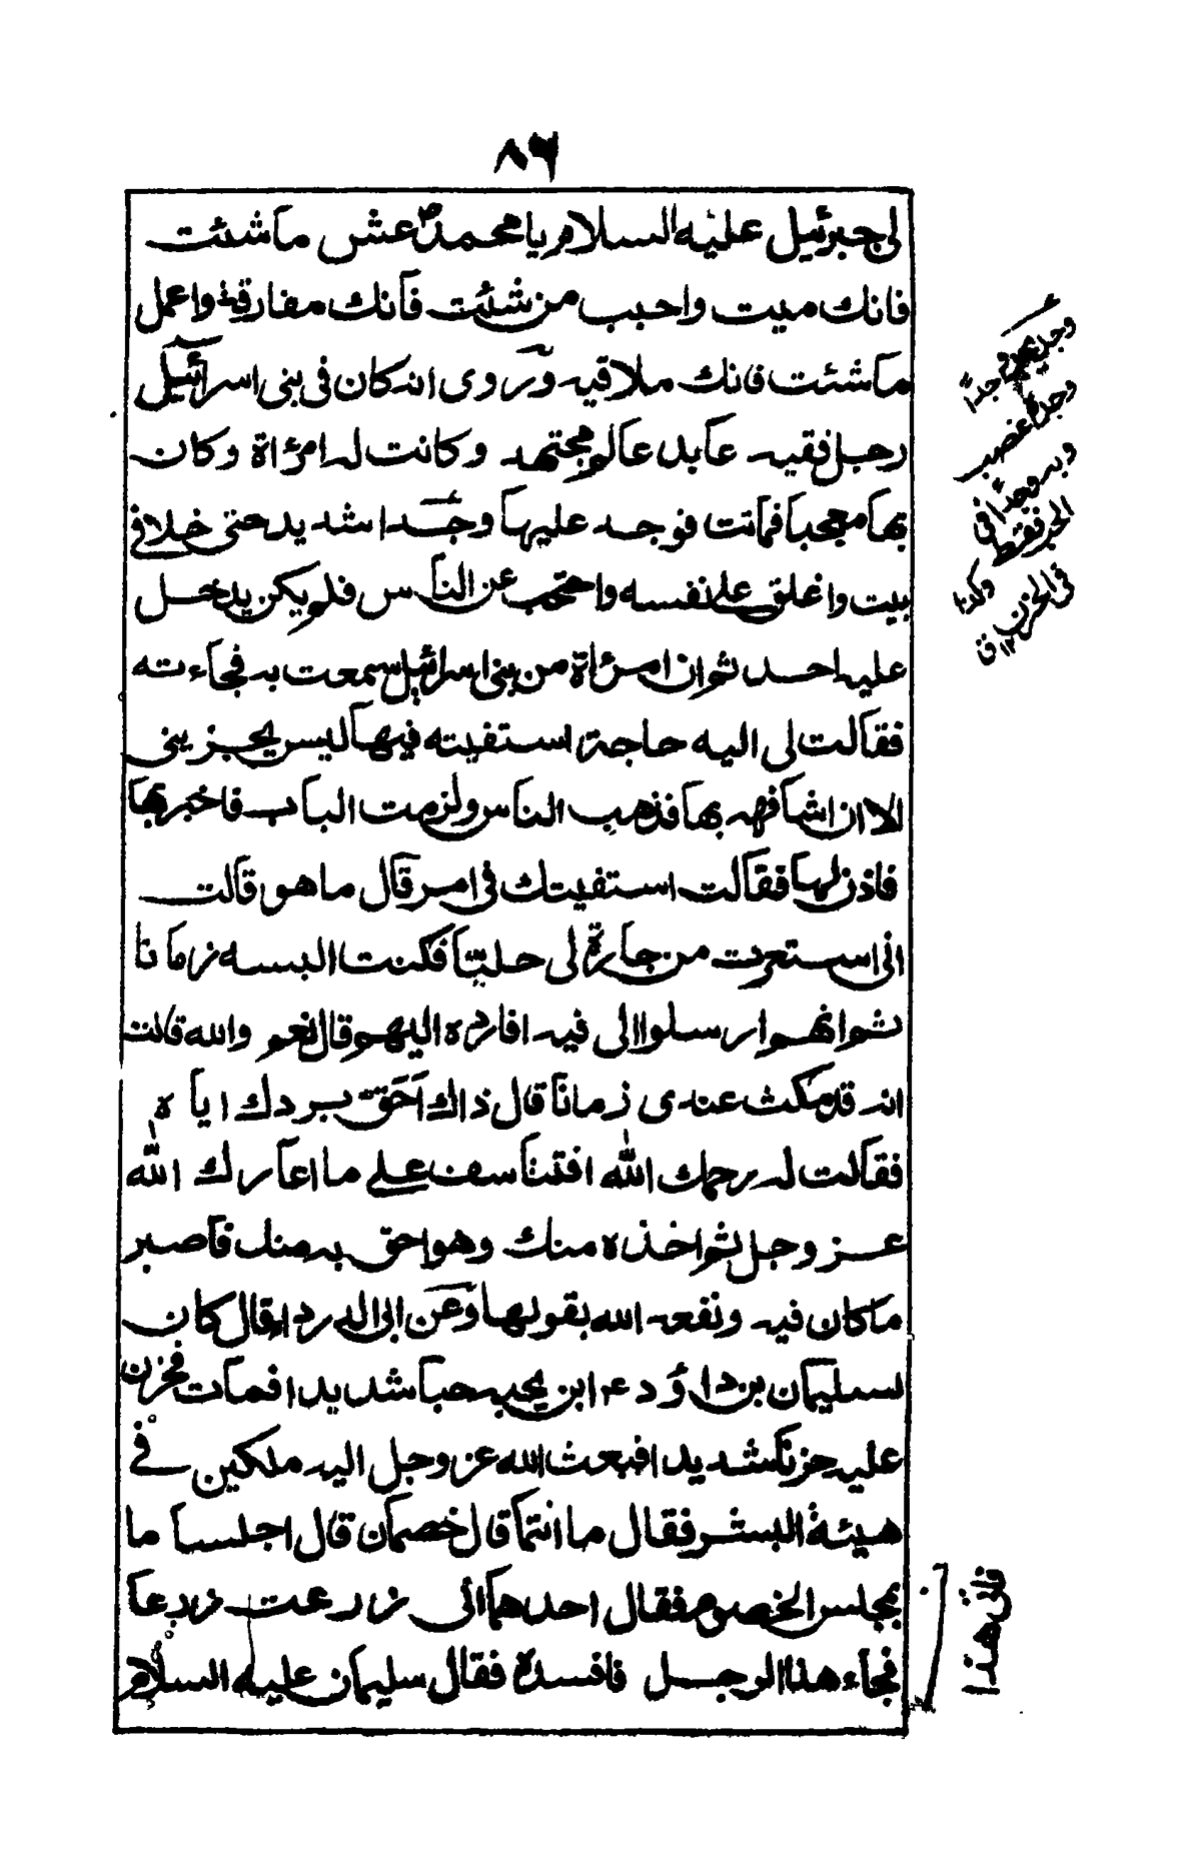 ٨٦
لى جبرئيل عليه السلام يا محمدؐ عش ما شئت
فانك ميت واحبب من شئت فانك مفارقه واعمل
ما شئت فانك ملاقيه وروى انه كان فى بنى اسرائيل
رجل فقيه عابد عالم مجتهد وكانت له امرأة وكان
بها معجبا فماتت فوجد عليها وجدا شديد حتى خلا فى
بيت واغلق على نفسه واحتجب عن الناس فلم يكن يدخل
عليه احد ثم ان امرأة من بنى اسرائيل سمعت به فجاءته
فقالت لى اليه حاجة استفيته فيها ليس يجزينى
الا ان اشافهه بها فذهب الناس ولزمت الباب فاخبر بها
فاذن لها فقالت استفيتك فى امر قال ما هو قالت
انى استعرت من جارة لى حليا فكنت البسه زمانا
ثم انهم ارسلوا الى فيه افارده اليهم قال نعم والله قالت
انه قد مكث عندى زمانا قال ذاك احق بردك اياه
فقالت له يرحمك الله افتتاسف على ما اعارك الله
عز وجل ثم اخذه منك وهو احق به منك فابصر
ما كان فيه ونفعه الله بقولها وعن ابى الدرداء قال كان
لسليمان بن داؤد ع ابن يحبه حبا شديدا فمات فحزن
عليه حزنا شديدا فبعث الله عز وجل اليه ملكين فى
هيئة البشر فقال ما انتما قال خصمان قال اجلسا ما
بمجلس الخصوم فقال احدهما انى زرعت زرعا
فجاء هذا الرجل فافسده فقال سليمان عليه السلام
وجد
وجدا
وجدة غضب
وبه وجدا فى
الحب فقط
وكذا
فى الحزن
١٢ ق
هذا